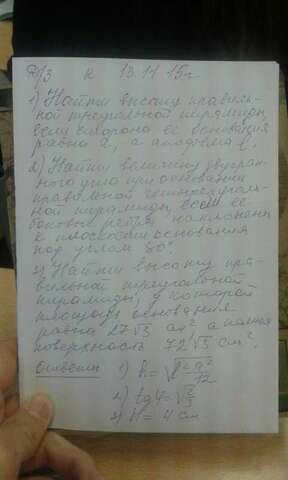 Д/З к 13.11.15г
1) Найти высоту правиль-
ной треугольной пирамиды,
если сторона ее основания
равна a, а апофема l.
2) Найти величину двугран-
ного угла при основании
правильной четырехуголь-
ной пирамиды, если её
боковые рёбра наклонены
к плоскости основания
под углом 30°.
3) Найти высоту пра-
вильной треугольной
пирамиды, у которой
площадь основания
равна 27√3 см², а полная
поверхность 72√3 см².
Ответы 1) h = √l² a²/12
2) tg φ = √2/3
3) H = 4 см